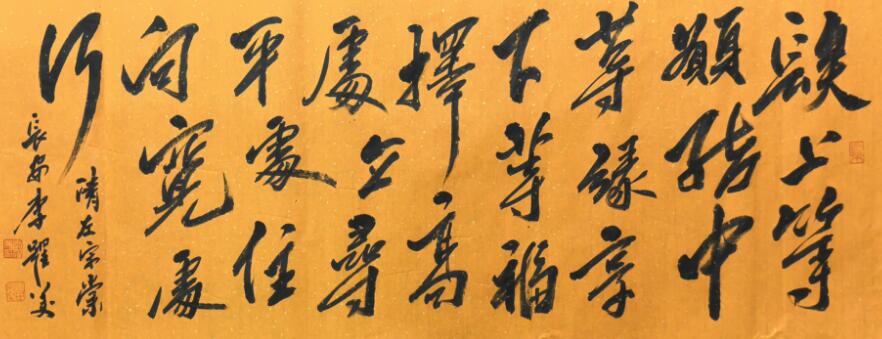 發上等
願結中
等緣享
下等福
擇高
處立尋
平處住
向寬處
行
清左宗棠
長安李